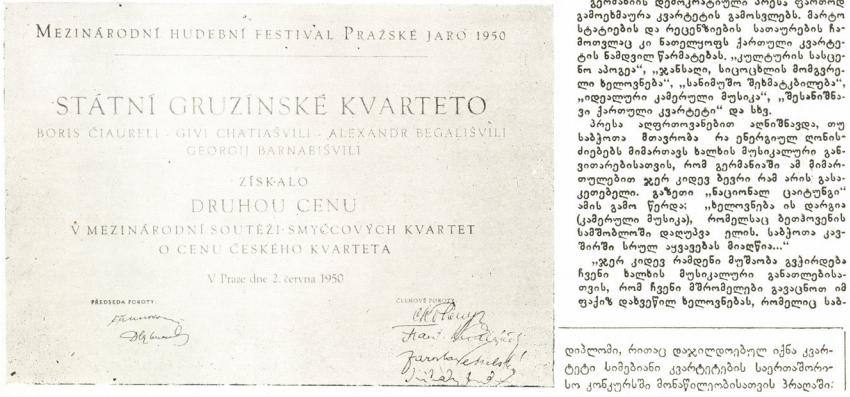 MEZINÁRODNÍ HUDEBNÍ FESTIVAL PRAŽSKÉ JARO 1950
STÁTNÍ GRUZÍNSKÉ KVARTETO
BORIS ČIAURELI - GIVI CHATIAŠVILI - ALEXANDR BEGALIŠVILI
GEORGIJ BARNABIŠVILI
ZÍSKALO
DRUHOU CENU
V MEZINÁRODNÍ SOUTĚŽI SMYČCOVÝCH KVARTET
O CENU ČESKÉHO KVARTETA
V Praze dne 2. června 1950
PŘEDSEDA POROTY:
ČLENOVÉ POROTY
გერმანიის დემოკრატიული პრესა ფართოდ
გამოეხმაურა კვარტეტის გამოსვლებს. მარტო
სტატიების და რეცენზიების სათაურების ჩა-
მოთვლაც კი ნათელყოფს ქართული კვარტე-
ტის ნამდვილ წარმატებას. „კულტურის სასცე-
ნო აპოგეა“, „ჯანსაღი, სიცოცხლის მომგვრე-
ლი ხელოვნება“, „სანიმუშო შეხმატკბილება“,
„იდეალური კამერული მუსიკა“, „შესანიშნა-
ვი ქართული კვარტეტი“ და სხვ.
პრესა აღფრთოვანებით აღნიშნავდა, თუ
საბჭოთა მთავრობა რა ენერგიულ ღონის-
ძიებებს მიმართავს ხალხის მუსიკალური გან-
ვითარებისათვის, რომ გერმანიაში ამ მიმარ-
თულებით ჯერ კიდევ ბევრი რამ არის გასა-
კეთებელი. გაზეთი „ნაციონალ ცაიტუნგი“
ამის გამო წერდა: „ხელოვნება ის დარგია
(კამერული მუსიკა), რომელსაც ბეთჰოვენის
სამშობლოში დაღუპვა ელის. საბჭოთა კავ-
შირში სრულ აყვავებას მიაღწია...“
„ჯერ კიდევ რამდენი მუშაობა გვჭირდება
ჩვენი ხალხის მუსიკალური განათლებისა-
თვის, რომ ჩვენი მშრომელები გავაცნოთ იმ
ფაქიზ დახვეწილ ხელოვნებას, რომელიც საბ-
დიპლომი, რითაც დაჯილდოებულ იქნა კვარ-
ტეტი სიმებიანი კვარტეტების საერთაშორი-
სო კონკურსში მონაწილეობისათვის პრაღაში: